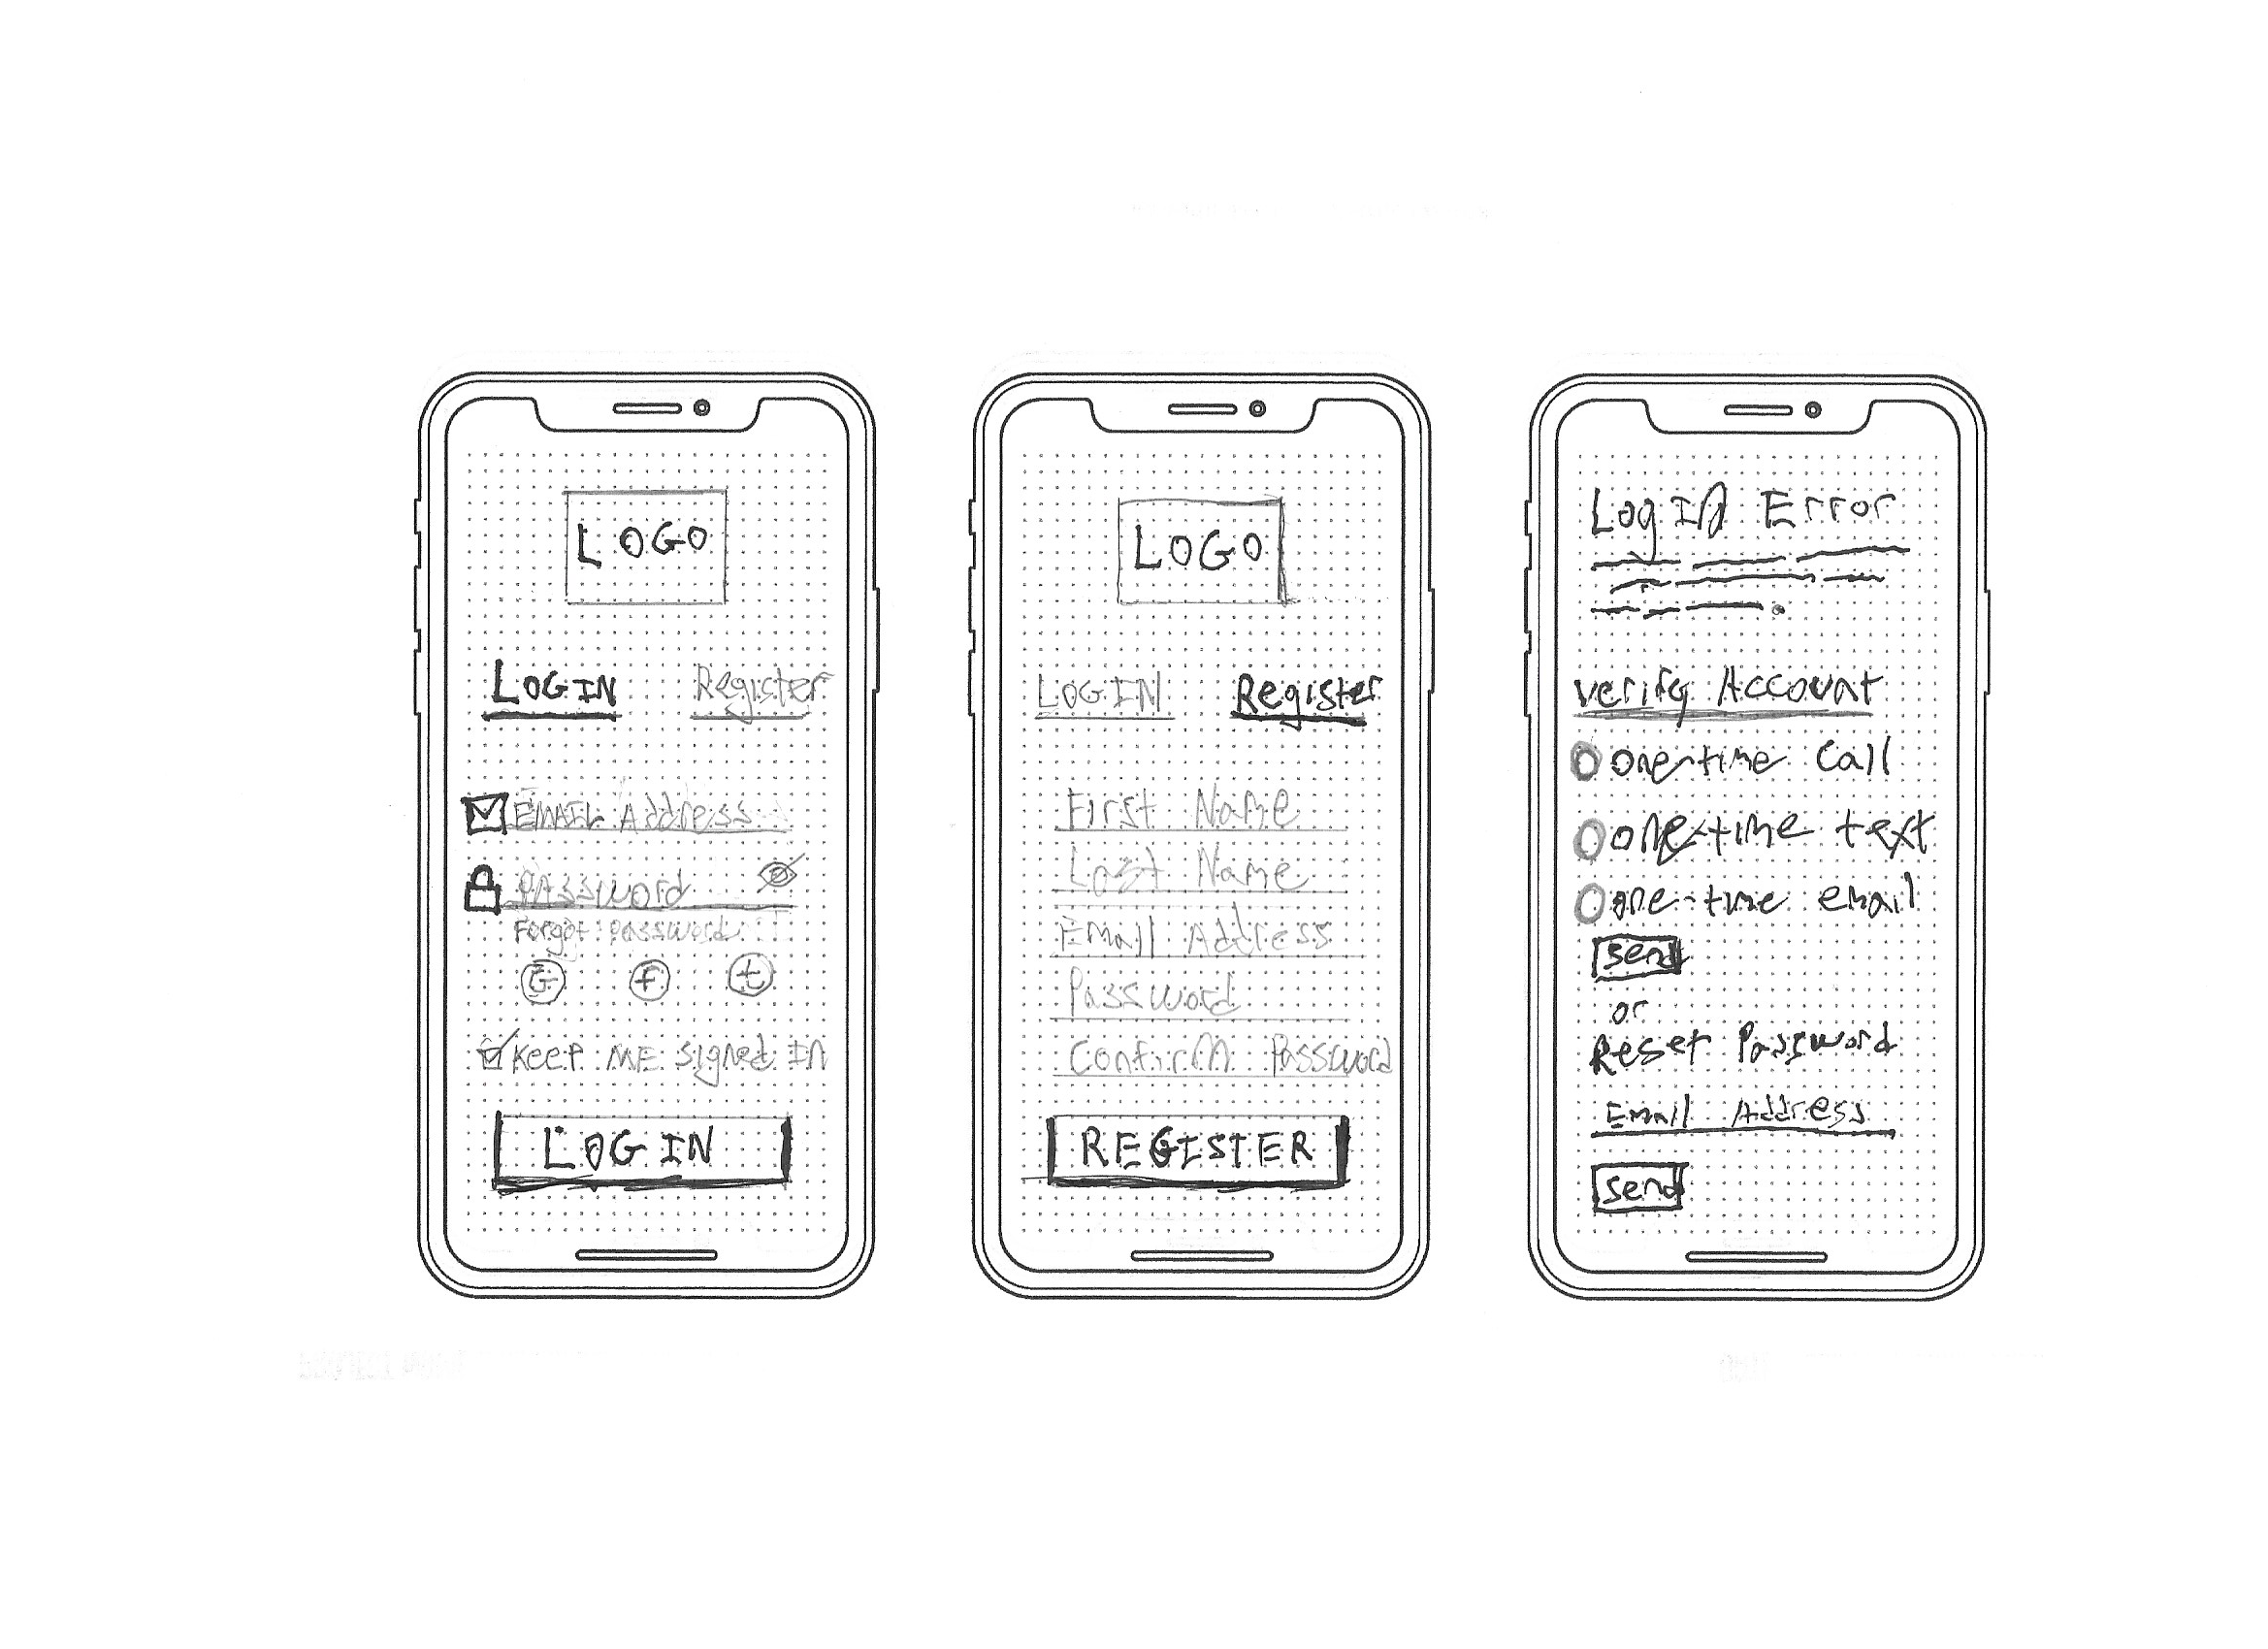 LOGO
LOGIN Register
EMAIL Address
Password
Forgot Password
G f t
Keep ME signed IN
LOGIN
LOGO
LOGIN Register
First Name
Last Name
Email Address
Password
Confirm Password
REGISTER
Log In Error
Verify Account
one-time call
one-time text
one-time email
send
or
Reset Password
Email Address
send